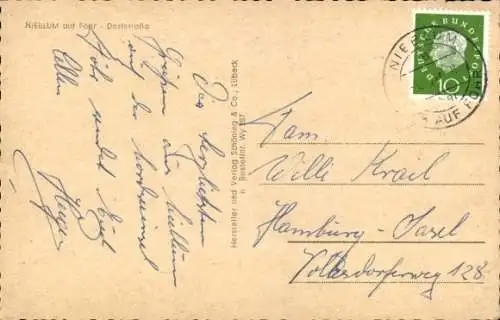 NIEBLUM auf Föhr - Dorfstraße
Die herzlichsten
Grüßen aus Nieblum
auf der Nordseeinsel
Föhr sendet Euch
allen
Hersteller und Verlag Schöning & Co., Lübeck
n Bestellnr. Wy 187
DEUTSCHE BUNDESPOST
10
NIEBLUM
AUF FÖHR
Fam.
Willi Krail
Hamburg-Sasel
Volksdorferweg 128